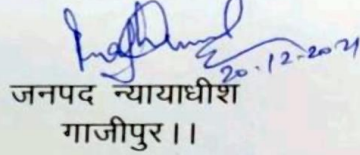 20-12-2021
जनपद न्यायाधीश
गाजीपुर।।